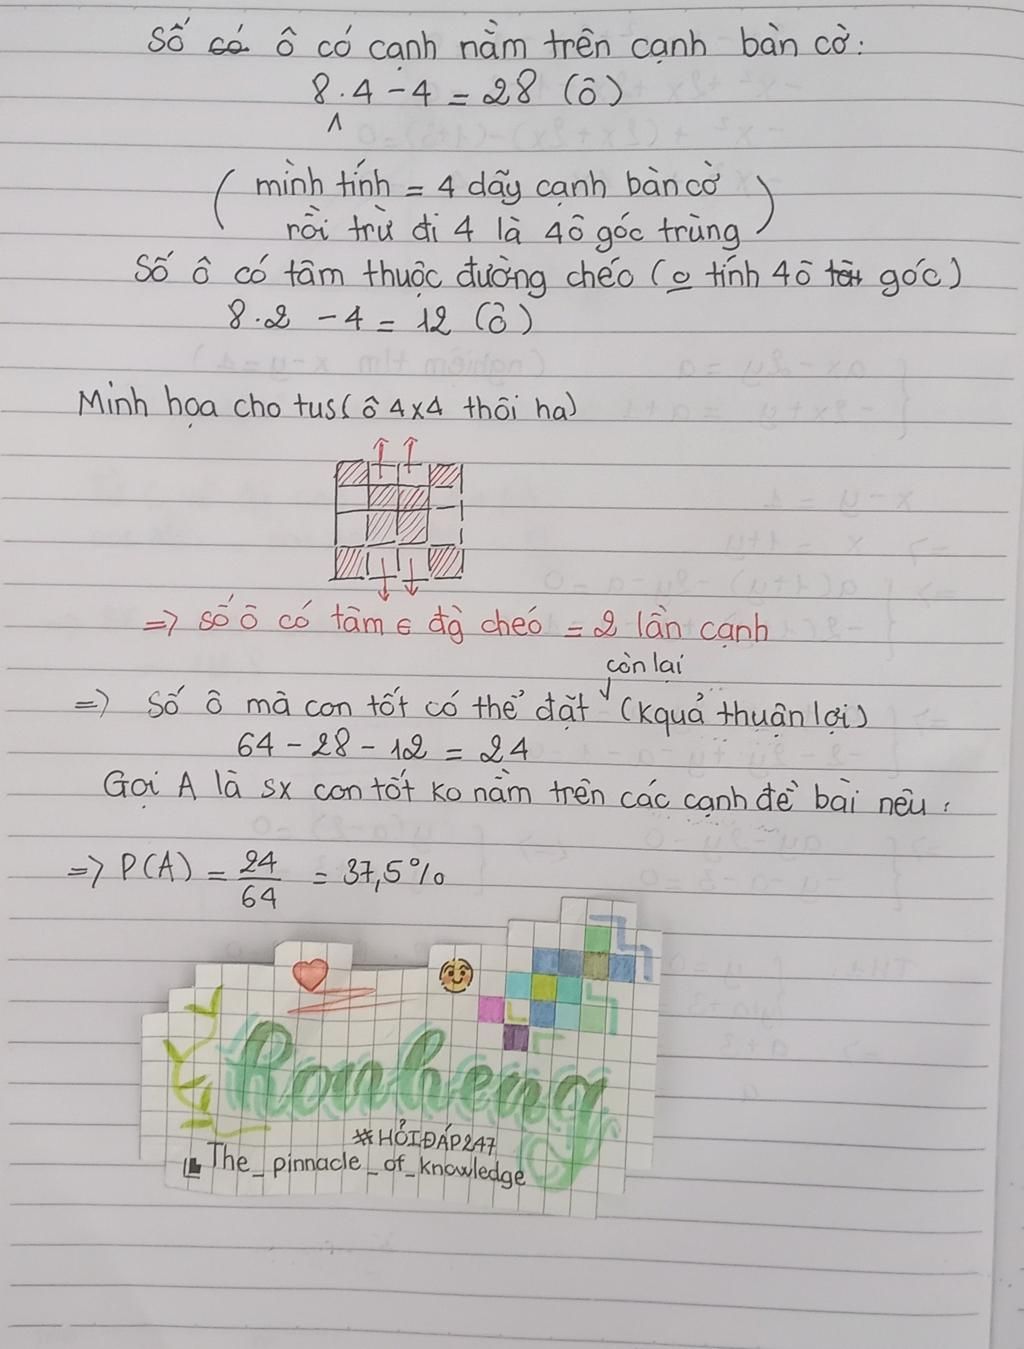 Số có ô có cạnh nằm trên cạnh bàn cờ:
8.4 - 4 = 28 (ô)
(mình tính = 4 dãy cạnh bàn cờ
rồi trừ đi 4 là 4ô góc trùng)
Số ô có tâm thuộc đường chéo (o tính 4ô góc)
8.2 - 4 = 12 (ô)
Minh họa cho tus (ô 4x4 thôi ha)
=> số ô có tâm ∈ đg chéo = 2 lần cạnh
còn lại
=> Số ô mà con tốt có thể đặt (kquả thuận lợi)
64 - 28 - 12 = 24
Gọi A là sx con tốt ko nằm trên các cạnh đề bài nêu.
=> P(A) = 24/64 = 37,5%
Ronheng
#HỎIĐÁP247
The_pinnacle_of_knowledge